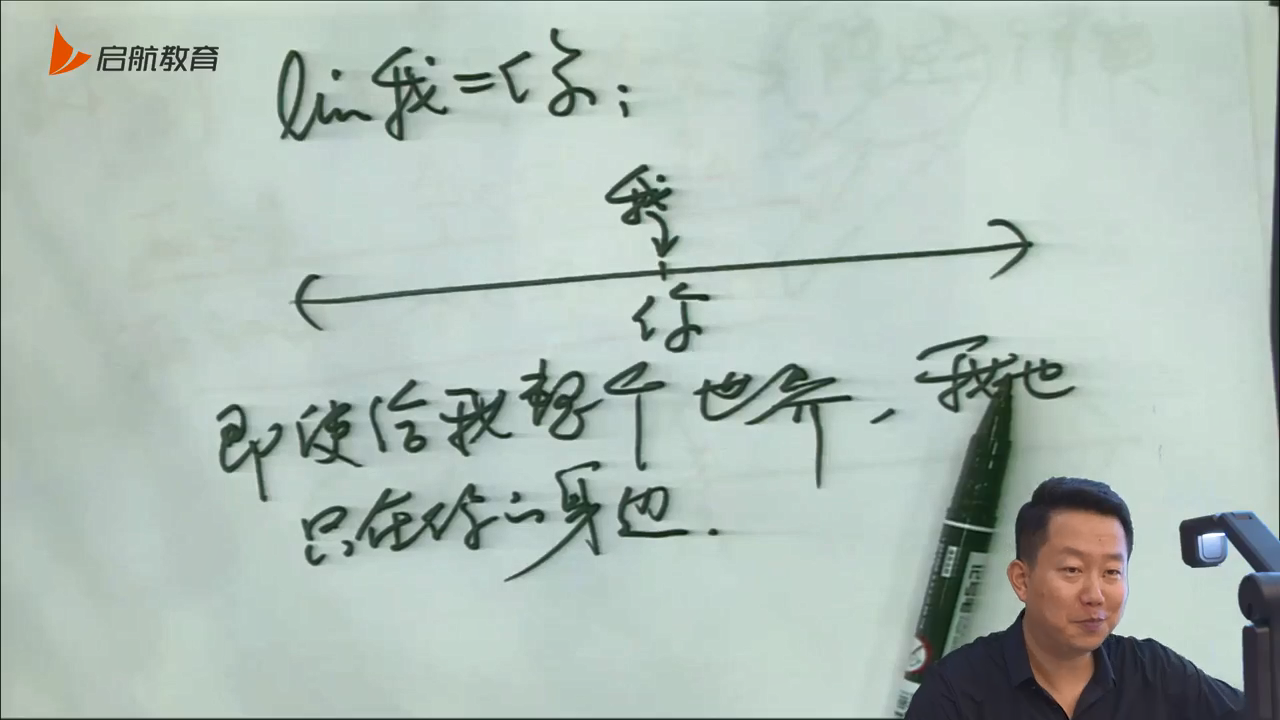 启航教育
lim我=你;
我
你
即使给我整个世界,我也
只在你的身边.